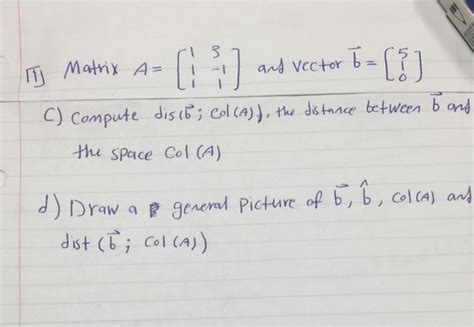 1] Matrix A = [1 3; 1 -1; 1 1] and vector b⃗ = [5; 1; 0]
c) Compute dis(b⃗; Col(A)), the distance between b⃗ and
the space Col(A)
d) Draw a general picture of b⃗, b̂, Col(A) and
dist (b⃗; Col(A))